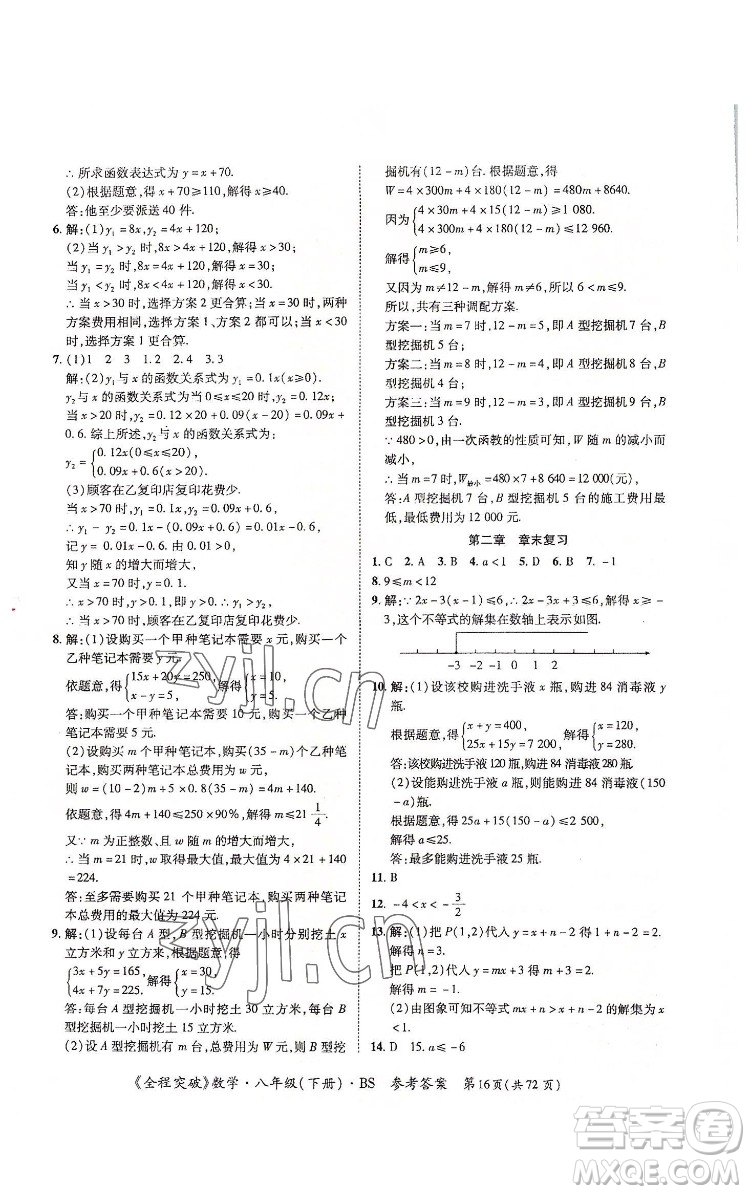 ∴ 所求函数表达式为 y = x + 70.
(2)根据题意,得 x + 70≥110,解得 x≥40.
答:他至少要派送 40 件.
6. 解:(1)y₁ = 8x,y₂ = 4x + 120.
(2)当 y₁ > y₂ 时,8x > 4x + 120,解得 x > 30.
当 y₁ = y₂ 时,8x = 4x + 120,解得 x = 30.
当 y₁ < y₂ 时,8x < 4x + 120,解得 x < 30.
∴ 当 x > 30 时,选择方案 2 更合算;当 x = 30 时,两种
方案费用相同,选择方案 1、方案 2 都可以;当 x < 30
时,选择方案 1 更合算.
7. (1)1 2 3 1.2 2.4 3.3
解:(2)y₁ 与 x 的函数关系式为 y₁ = 0.1x(x≥0);
y₂ 与 x 的函数关系式为当 0≤x≤20 时,y₂ = 0.12x,
当 x > 20 时,y₂ = 0.12 × 20 + 0.09(x - 20) = 0.09x +
0.6. 综上所述,y₂ 与 x 的函数关系式为:
y₂ = {0.12x(0≤x≤20)
0.09x + 0.6(x > 20)
(3)顾客在乙复印店复印花费少.
当 x > 70 时,y₁ = 0.1x,y₂ = 0.09x + 0.6,
∴ y₁ - y₂ = 0.1x - (0.09x + 0.6) = 0.01x - 0.6,
记 y = 0.01x - 0.6,由 0.01 > 0,则 y 随 x 的增大而增大,
知 y 随 x 的增大而增大
又 x = 70 时,y = 0.1,
∴ x > 70 时,y > 0.1,∴ y₁ > y₂,
∴ 当 x > 70 时,顾客在乙复印店复印花费少.
8. 解:(1)设购买一个甲种笔记本需要 x 元,购买一个
乙种笔记本需要 y 元.
依题意,得{15x + 20y = 250, 解得{x = 10,
x - y = 5, y = 5.
答:购买一个甲种笔记本需要 10 元,购买一个乙种
笔记本需要 5 元.
(2)设购买 m 个甲种笔记本,购买(35 - m)个乙种笔
记本,设购买两种笔记本总费用为 w 元,
则 w = (10 - 2)m + 5 × 0.8(35 - m) = 4m + 140.
依题意,得 4m + 140≤250 × 90%,解得 m≤21 1/4.
又∵ m 为正整数,且 w 随 m 的增大而增大,
∴ 当 m = 21 时,w 取得最大值,最大值为 4 × 21 + 140
= 224.
答:至多需要购买 21 个甲种笔记本,购买两种笔记本
总费用的最大值为 224 元.
9. 解:(1)设每台 A 型,B 型挖掘机一小时分别挖土 x
立方米和 y 立方米,根据题意,得
{3x + 5y = 165, 解得{x = 30,
4x + 7y = 225. y = 15.
答:每台 A 型挖掘机一小时挖土 30 立方米,每台 B
型挖掘机一小时挖土 15 立方米.
(2)设 A 型挖掘机有 m 台,总费用为 W 元,则 B 型挖
掘机有(12 - m)台. 根据题意,得
W = 4 × 300m + 4 × 180(12 - m) = 480m + 8640.
因为{4 × 30m + 4 × 15(12 - m)≥1 080,
4 × 300m + 4 × 180(12 - m)≤12 960.
解得{m≥6,
m≤9,
又因为 m≠12 - m,解得 m≠6,所以 6 < m≤9.
所以,共有三种调配方案.
方案一:当 m = 7 时,12 - m = 5,即 A 型挖掘机 7 台,B
型挖掘机 5 台;
方案二:当 m = 8 时,12 - m = 4,即 A 型挖掘机 8 台,B
型挖掘机 4 台;
方案三:当 m = 9 时,12 - m = 3,即 A 型挖掘机 9 台,B
型挖掘机 3 台.
∵ 480 > 0,由一次函数的性质可知,W 随 m 的减小而
减小,
∴ 当 m = 7 时,W最小 = 480 × 7 + 8 640 = 12 000(元),
答:A 型挖掘机 7 台,B 型挖掘机 5 台的施工费用最
低,最低费用为 12 000 元.
第二章 章末复习
1. C 2. A 3. B 4. a < 1 5. B 6. D 7. -1
8. 9≤m < 12
9. 解:∵ 2x - 3(x - 1)≤6,∴ 2x - 3x + 3≤6,解得 x≥ -
3,这个不等式的解集在数轴上表示如图.
-3 -2 -1 0 1 2 3
10. 解:(1)设该校购进洗手液 x 瓶,购进 84 消毒液 y
瓶.
根据题意,得{x + y = 400, 解得{x = 120,
25x + 15y = 7 200, y = 280.
答:该校购进洗手液 120 瓶,购进 84 消毒液 280 瓶.
(2)设能购进洗手液 a 瓶,则能购进 84 消毒液(150
- a)瓶.
根据题意,得 25a + 15(150 - a)≤2 500,
解得 a≤25.
答:最多能购进洗手液 25 瓶.
11. B
12. -4 < x < -3/2
13. 解:(1)把 P(1,2)代人 y = x + n - 2 得 1 + n - 2 = 2,
解得 n = 3.
把 P(1,2)代人 y = mx + n 得 m + 3 = 2,
解得 m = -1.
(2)由图象可知不等式 mx + n > x + n - 2 的解集为 x
< 1.
14. D 15. a≤ -6
《全程突破》数学·八年级(下册)·BS 参考答案 第16页(共72页)
zyjl.cn
zyjl.cn
答案圈
MXQE.COM